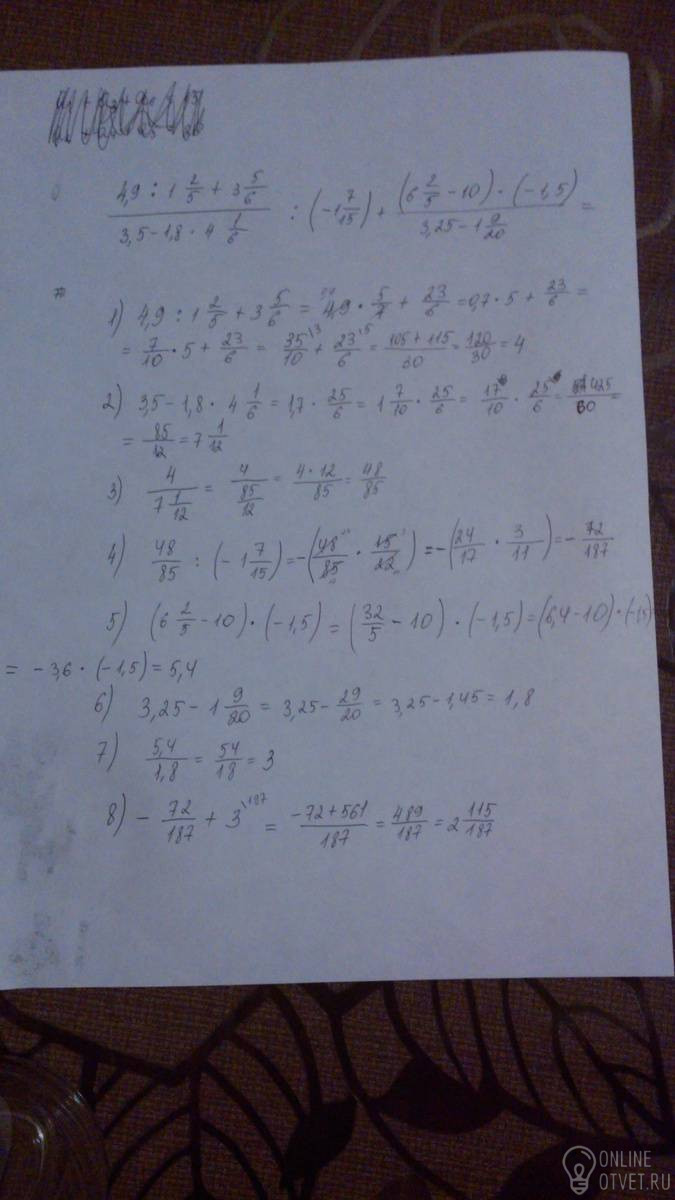 (4,9 : 1 2/5 + 3 5/6)/(3,5 - 1,8 · 4 1/6) : (-1 7/15) + ((6 2/5 - 10) · (-1,5))/(3,25 - 1 9/20) =
1) 4,9 : 1 2/5 + 3 5/6 = 4,9 · 5/7 + 23/6 = 0,7 · 5 + 23/6 =
= 7/10 · 5 + 23/6 = 35/10 \3 + 23/6 \5 = (105 + 115)/30 = 120/30 = 4
2) 3,5 - 1,8 · 4 1/6 = 1,7 · 25/6 = 1 7/10 · 25/6 = 17/10 · 25/6 = 425/60 =
= 85/12 = 7 1/12
3) 4/(7 1/12) = 4/(85/12) = (4 · 12)/85 = 48/85
4) 48/85 : (-1 7/15) = -(48/85 · 15/22) = -(24/17 · 3/11) = -72/187
5) (6 2/5 - 10) · (-1,5) = (32/5 - 10) · (-1,5) = (6,4 - 10) · (-1,5)
= -3,6 · (-1,5) = 5,4
6) 3,25 - 1 9/20 = 3,25 - 29/20 = 3,25 - 1,45 = 1,8
7) 5,4/1,8 = 54/18 = 3
8) -72/187 + 3 \187 = (-72 + 561)/187 = 489/187 = 2 115/187
ONLINE
OTVET.RU